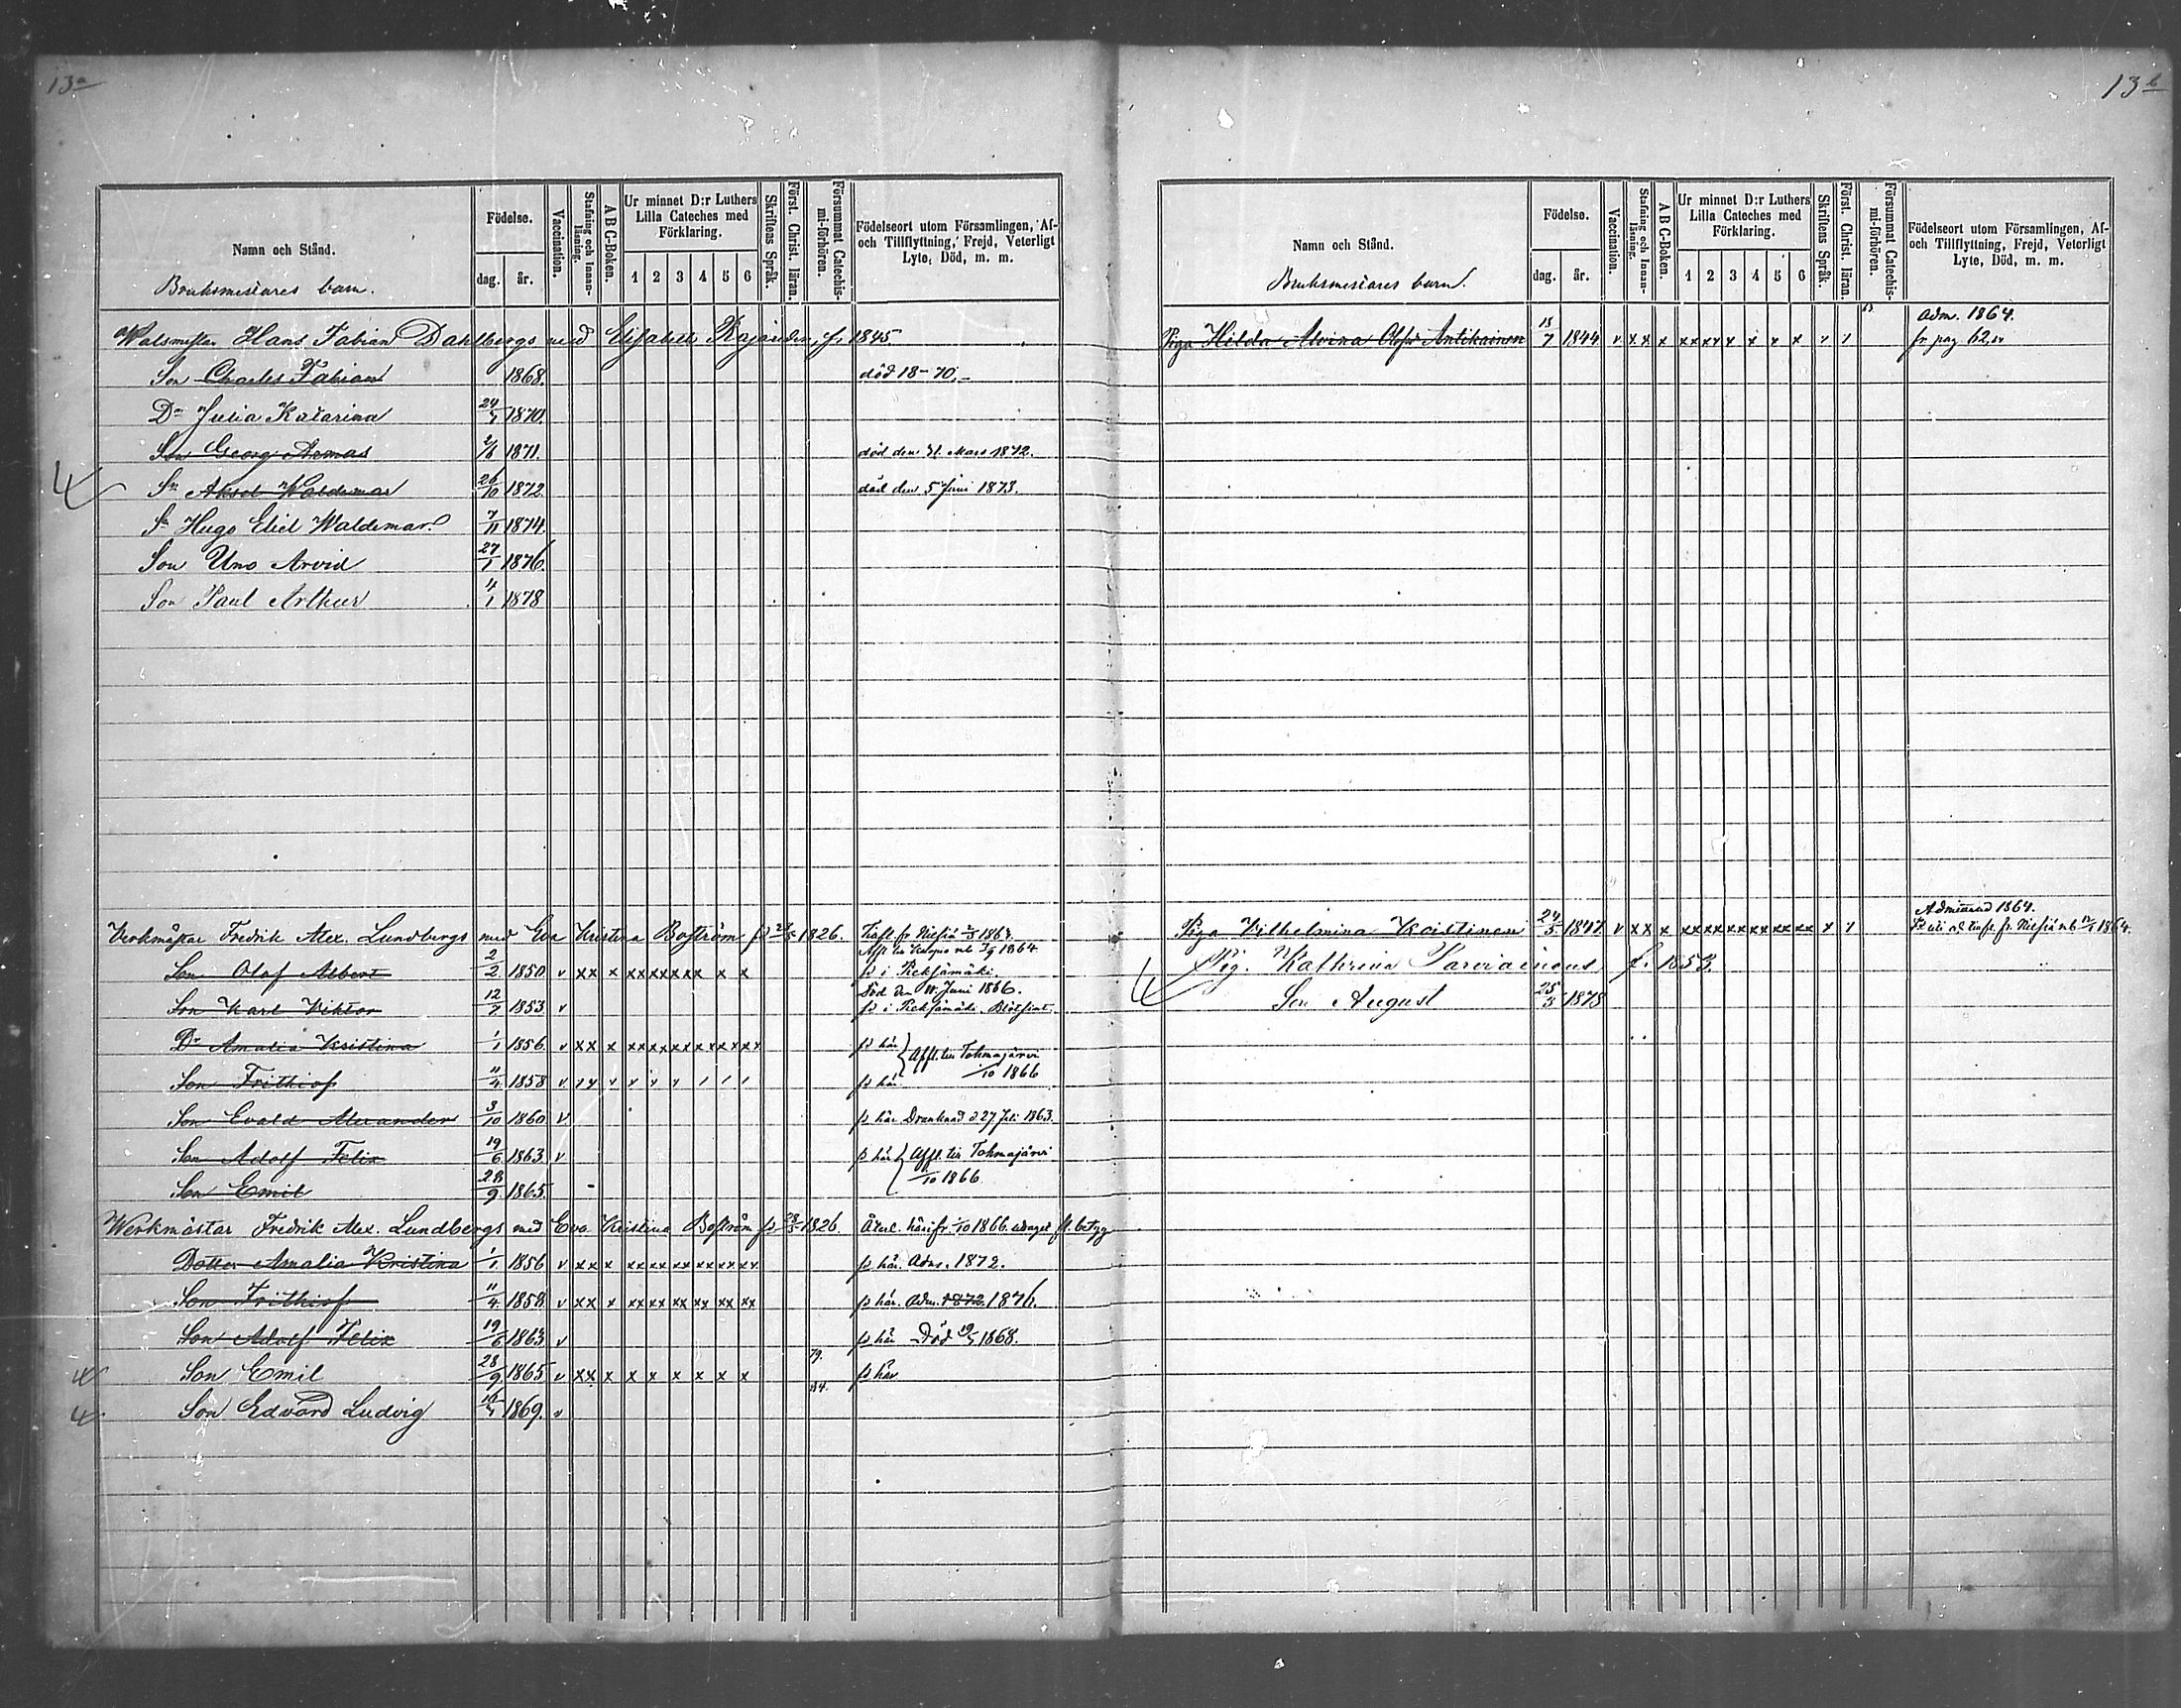 13a
Namn och Stånd.
Bruksmestares barn.
Födelse.
dag. år.
Vaccination.
Stafning och Innanläsning.
A B C-Boken.
Ur minnet D:r Luthers Lilla Cateches med Förklaring.
1 2 3 4 5 6
Skriftens Språk.
Först. Christ. läran.
Försummat Catechismi-förhören.
Födelseort utom Församlingen, Af- och Tillflyttning, Frejd, Veterligt Lyte, Död, m. m.
Walsmestar Hans Fabian Dahlbergs med Elisabeth f. 1845
Son Charles Fabian 1868. död 18-70.
Dr Julia Katarina 1870.
Son Georg Armas 2/6 1871. död den 31. Mars 1872.
Sn Aksel Waldemar 26/10 1872. död den 5 Juni 1873.
Sn Hugo Eliel Waldemar 7/11 1874.
Son Uno Arvid 27/1 1876.
Son Paul Arthur 4/1 1878
Verkmästar Fredrik Alex. Lundbergs med Eva Kristina Boström 1826.
1864
Son Olof Albert 2/2 1850 v xx x xx xx xx x x x fd i Pieksämäki.
Död den 11. Juni 1866.
Son Karl Viktor 12/7 1853 v fd i Pieksämäki.
Dr Amalia Kristina 1/1 1856 v xx x xx xx xx xx xx xx fd här
Affl. till Tohmajärvi /10 1866
Son Frithiof 11/4 1858 v fd här
Son Evald Alexander 3/10 1860 v fd här Drunknad d 27 Juli 1863.
Son Adolf Felix 19/6 1863 v fd här Affl. till Tohmajärvi
Son Emil 28/9 1865. - /10 1866
Werkmästar Fredrik Alex. Lundbergs med Eva Kristina Boström fd 28/5 1826. 1866 betyg
Dotter Amalia Kristina 1/1 1856 v xx x xx xx xx xx xx xx fd här. Adm. 1872.
Son Frithiof 11/4 1858. v xx x xx xx xx xx xx xx fd här. Adm. 1872 1876.
Son Adolf Felix 19/6 1863 v fd här Död 1868.
79.
Son Emil 28/9 1865 v xx x x x x x x x fd här
84.
Son Edvard Ludvig 1869. v
13b
Namn och Stånd.
Bruksmestares barn.
Födelse.
dag. år.
Vaccination.
Stafning och Innanläsning.
A B C-Boken.
Ur minnet D:r Luthers Lilla Cateches med Förklaring.
1 2 3 4 5 6
Skriftens Språk.
Först. Christ. läran.
Försummat Catechismi-förhören.
Födelseort utom Församlingen, Af- och Tillflyttning, Frejd, Veterligt Lyte, Död, m. m.
63 Adm. 1864.
Piga Hilda Alvina Antikainen 15/7 1844 v xx x xx xx x x x x fr pag 62.
Admitterad 1864.
Piga Vilhelmina Kristinen 24/5 1847 v xx x xx xx xx xx xx xx 1864.
Pig. Kathrina Parviainens f. 1853.
Son August 25/3 1878